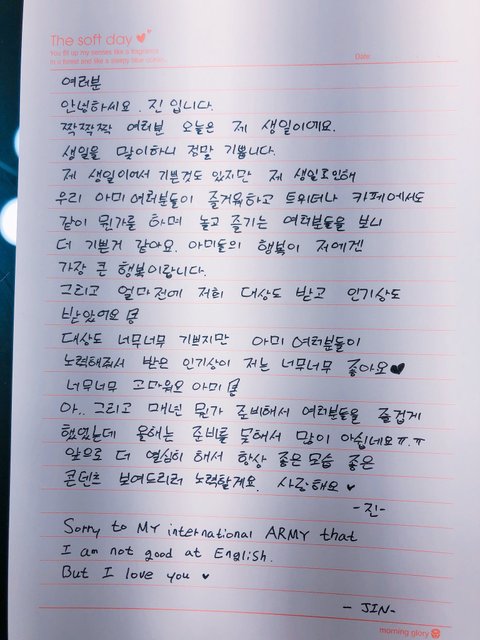 The soft day
You fill up my senses like a fragrance
in a forest and like a sleepy blue ocean.
Date
여러분
안녕하세요. 진 입니다.
짝짝짝 여러분 오늘은 제 생일이예요.
생일을 맞이하니 정말 기쁩니다.
제 생일이어서 기쁜것도 있지만 제 생일로인해
우리 아미 여러분들이 즐거워하고 트위터나 카페에서도
같이 뭔가를 하며 놀고 즐기는 여러분들을 보니
더 기쁜거 같아요. 아미들의 행복이 저에겐
가장 큰 행복이랍니다.
그리고 얼마전에 저희 대상도 받고 인기상도
받았어요
대상도 너무너무 기쁘지만 아미 여러분들이
노력해줘서 받은 인기상이 저는 너무너무 좋아요♥
너무너무 고마워요 아미
아.. 그리고 매년 뭔가 준비해서 여러분들을 즐겁게
했었는데 올해는 준비를 못해서 많이 아쉽네요ㅠ.ㅠ
앞으로 더 열심히 해서 항상 좋은 모습 좋은
콘텐츠 보여드리려 노력할게요. 사랑해요 ♥
-진-
Sorry to MY international ARMY that
I am not good at English.
But I love you ♥
- JIN-
morning glory